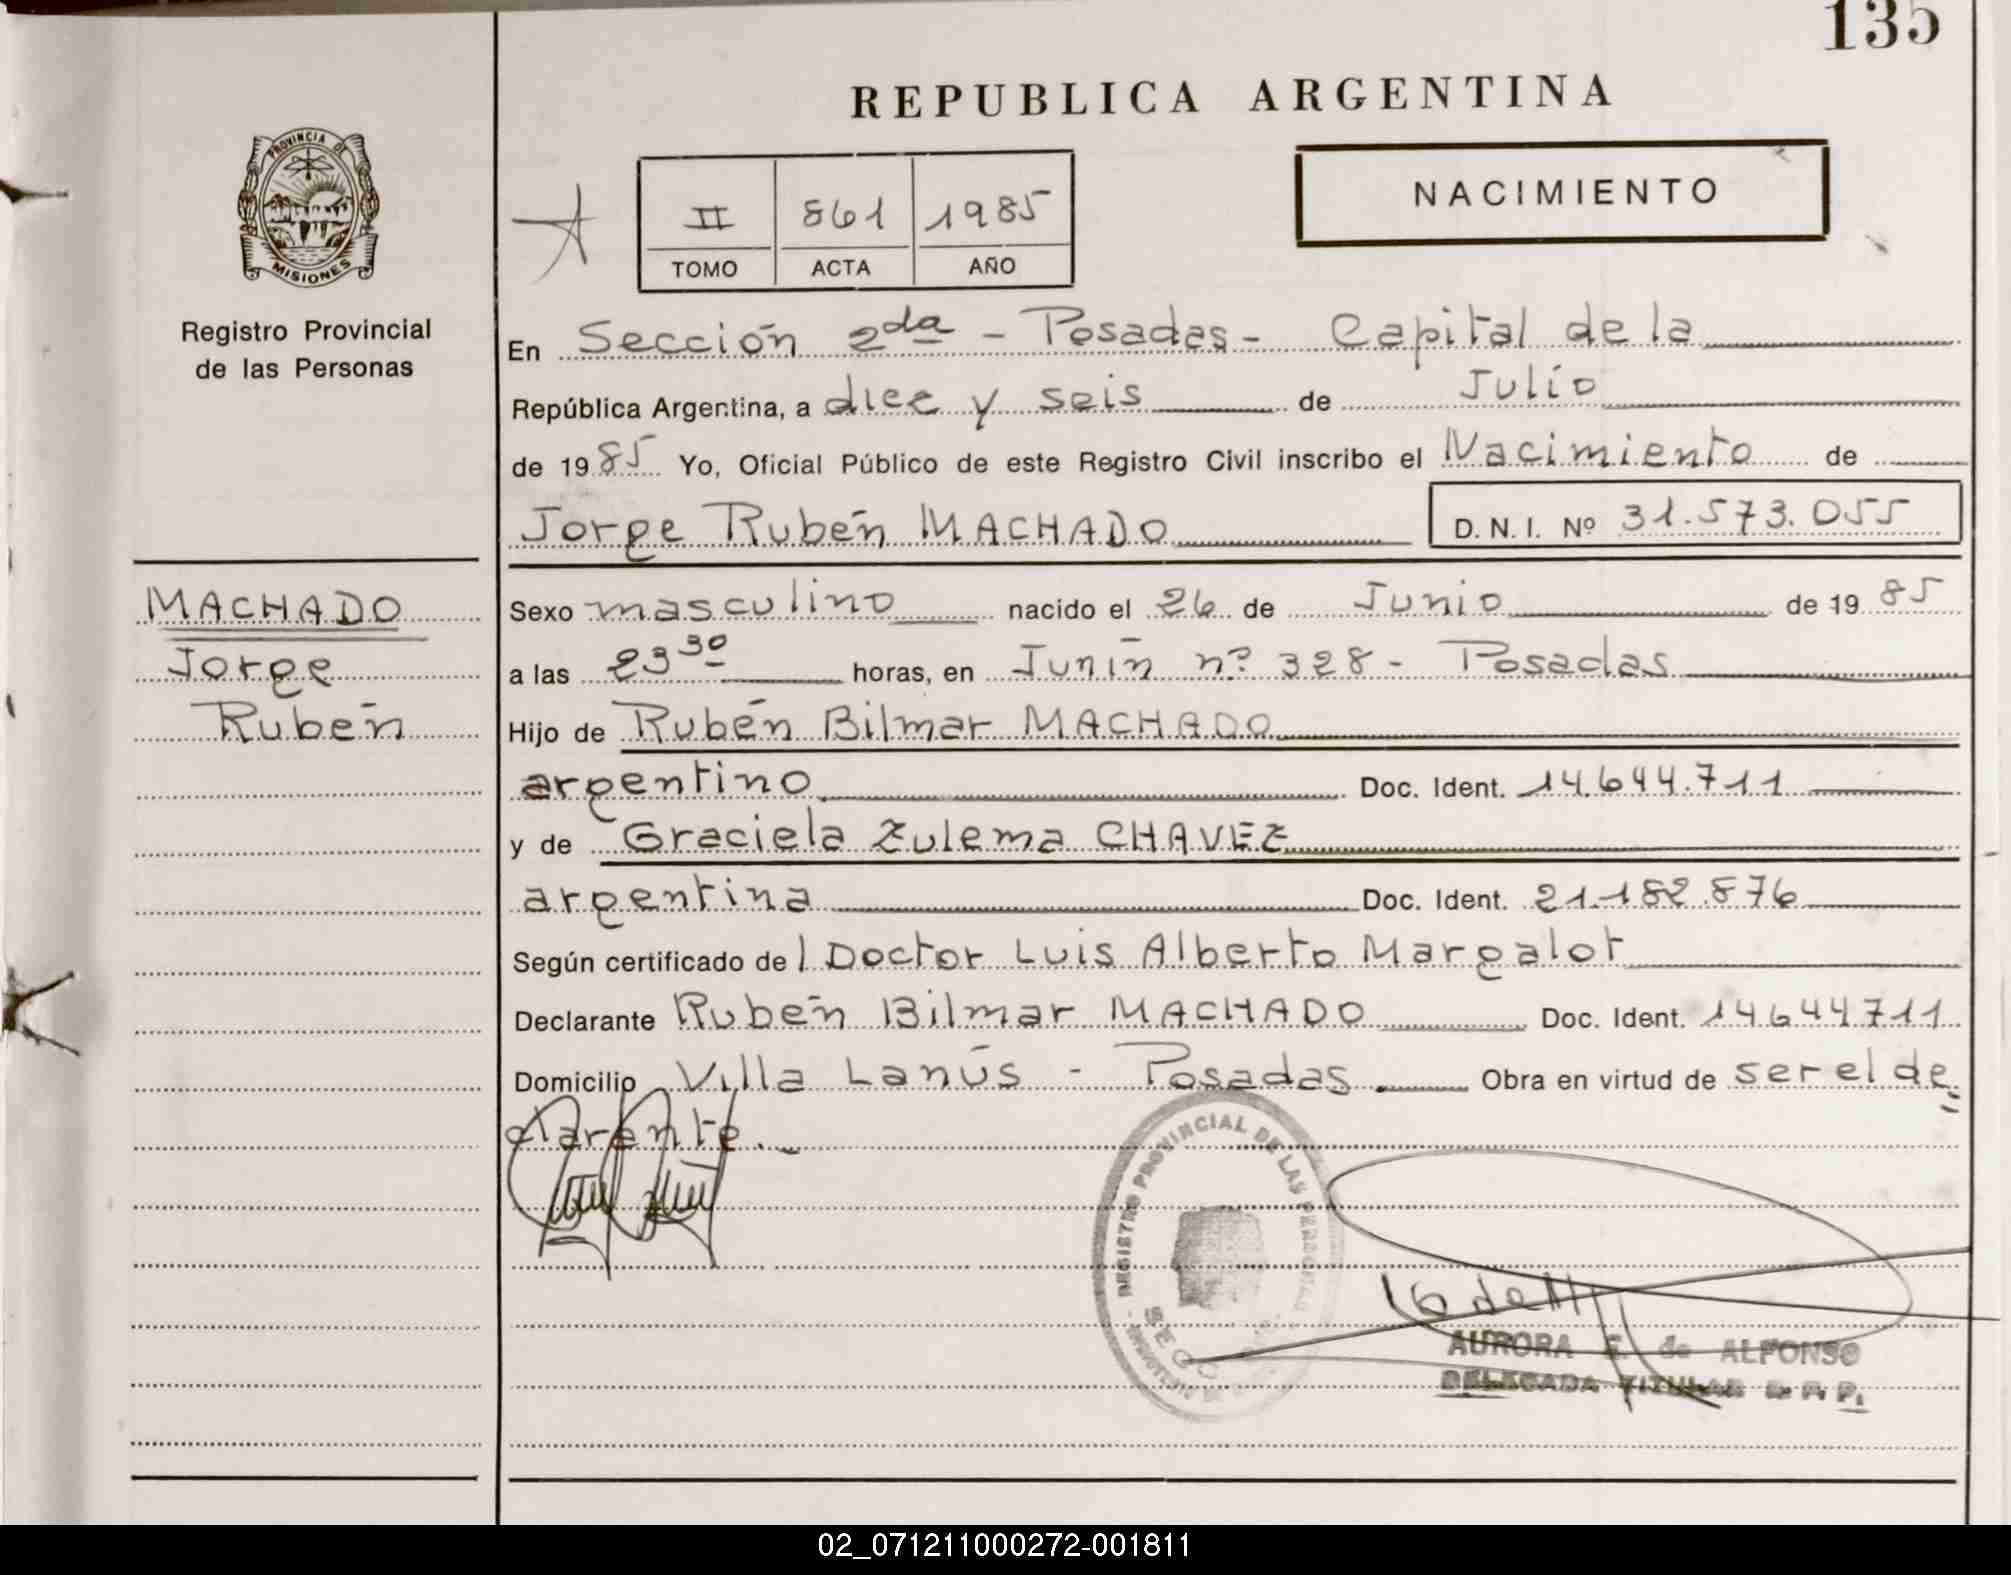 135
REPUBLICA ARGENTINA
PROVINCIA DE
MISIONES
Registro Provincial
de las Personas
II 861 1985
TOMO ACTA AÑO
NACIMIENTO
En Sección 2da - Posadas - Capital de la
República Argentina, a diez y seis de Julio
de 1985 Yo, Oficial Público de este Registro Civil inscribo el Nacimiento de
Jorge Rubén MACHADO D.N.I. Nº 31.573.055
MACHADO
Jorge
Rubén
Sexo masculino nacido el 26 de Junio de 1985
a las 23 30 horas, en Junín nº. 328 - Posadas
Hijo de Rubén Bilmar MACHADO
argentino Doc. Ident. 14.644.711
y de Graciela Zulema CHAVEZ
argentina Doc. Ident. 21.182.876
Según certificado del Doctor Luis Alberto Margalot
Declarante Rubén Bilmar MACHADO Doc. Ident. 14644711
Domicilio Villa Lanús - Posadas Obra en virtud de ser el de
clarante.
REGISTRO PROVINCIAL DE LAS PERSONAS
AURORA de ALFONSO
DELEGADA TITULAR R. P. P.
02_071211000272-001811